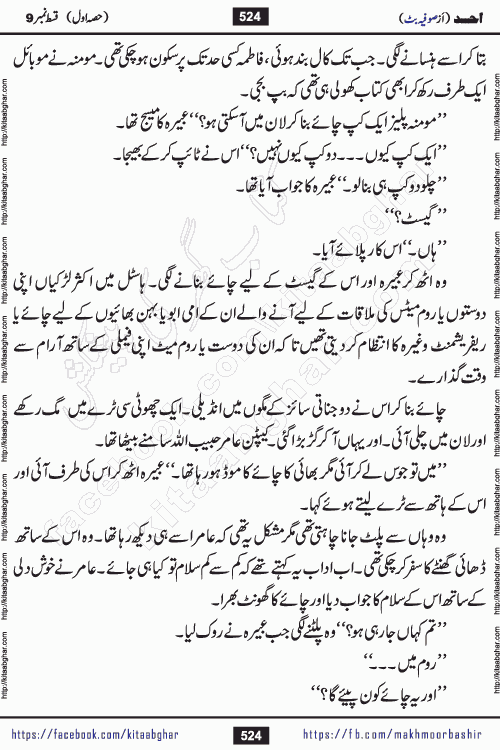 احد (از صوفیہ بٹ) 524 (حصہ اول) قسط نمبر 9
بتا کر اسے ہنسانے لگی۔ جب تک کال بند ہوئی، فاطمہ کسی حد تک پرسکون ہو چکی تھی۔ مومنہ نے موبائل
ایک طرف رکھ کر ابھی کتاب کھولی ہی تھی کہ بپ بجی۔
”مومنہ پلیز ایک کپ چائے بنا کر لان میں آسکتی ہو؟“ عبیرہ کا میسج تھا۔
”ایک کپ کیوں۔۔۔دو کپ کیوں نہیں؟“ اس نے ٹائپ کر کے بھیجا۔
”چلو دو کپ ہی بنا لو۔“ عبیرہ کا جواب آیا تھا۔
”گیسٹ؟“
”ہاں۔“ اس کا رپلائے آیا۔
وہ اٹھ کر عبیرہ اور اس کے گیسٹ کے لیے چائے بنانے لگی۔ ہاسٹل میں اکثر لڑکیاں اپنی
دوستوں یا روم میٹس کی ملاقات کے لیے آنے والے ان کے امی ابو یا بہن بھائیوں کے لیے چائے یا
ریفریشمنٹ وغیرہ کا انتظام کر دیتی تھیں تاکہ ان کی دوست یا روم میٹ اپنی فیملی کے ساتھ آرام سے
وقت گذارے۔
چائے بنا کر اس نے دو جناتی سائز کے مگوں میں انڈیلی۔ ایک چھوٹی سی ٹرے میں مگ رکھے
اور لان میں چلی آئی۔ اور یہاں آکر گڑبڑا گئی۔ کیپٹن عامر حبیب اللہ سامنے بیٹھا تھا۔
”میں تو جوس لے کر آئی مگر بھائی کا چائے کا موڈ ہو رہا تھا۔“ عبیرہ اٹھ کر اس کی طرف آئی اور
اس کے ہاتھ سے ٹرے لیتے ہوئے کہا۔
وہ وہاں سے پلٹ جانا چاہتی تھی مگر مشکل یہ تھی کہ عامر اسے ہی دیکھ رہا تھا۔ وہ اس کے ساتھ
ڈھائی گھنٹے کا سفر کر چکی تھی۔ اب اداب یہ کہتے تھے کہ کم سے کم سلام تو کیا ہی جائے۔ عامر نے خوش دلی
کے ساتھ اس کے سلام کا جواب دیا اور چائے کا گھونٹ بھرا۔
”تم کہاں جا رہی ہو؟“ وہ پلٹنے لگی جب عبیرہ نے روک لیا۔
”روم میں۔۔۔“
”اور یہ چائے کون پیئے گا؟“
https://facebook.com/kitaabghar 524 https://fb.com/makhmoorbashir
http://kitaabghar.com